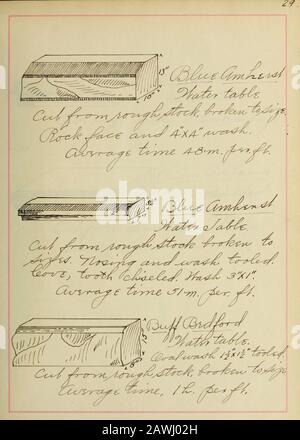 29
Blue Amherst
Water table
Cut from rough stock, broken to size.
Rock face and 4"X4" wash.
Average time 48-m. per ft.
Blue Amherst
Water Table.
Cut from rough stock broken to
sizes. Nosing and wash tooled.
Cove, tooth chiseled. Wash 3"X1".
Average time 51-m. per ft.
Buff Bedford
Water table.
Oval wash tooled.
Cut from rough stock, broken to size
Average time, 1 h. per ft.
alamy
Image ID: 2AWJ02H
www.alamy.com